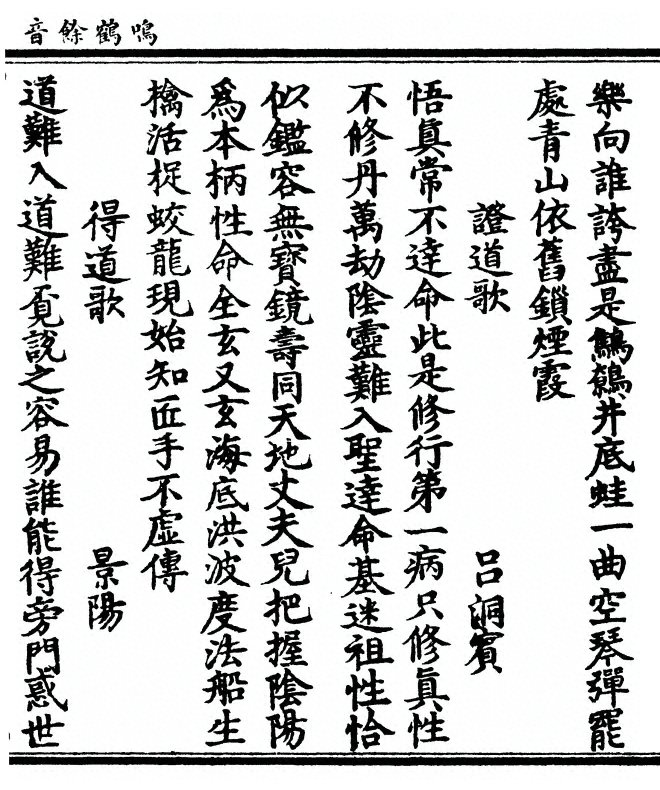 鳴鶴餘音
樂向誰誇盡是鷦鷯井底蛙一曲空琴彈罷
處青山依舊鎖煙霞
證道歌 呂洞賓
悟眞常不達命此是修行第一病只修眞性
不修丹萬劫陰靈難入聖達命基迷祖性恰
似鑑容無寶鏡壽同天地丈夫兒把握陰陽
爲本柄性命全玄又玄海底洪波度法船生
擒活捉蛟龍現始知匠手不虛傳
得道歌 景陽
道難入道難覓說之容易誰能得旁門惑世